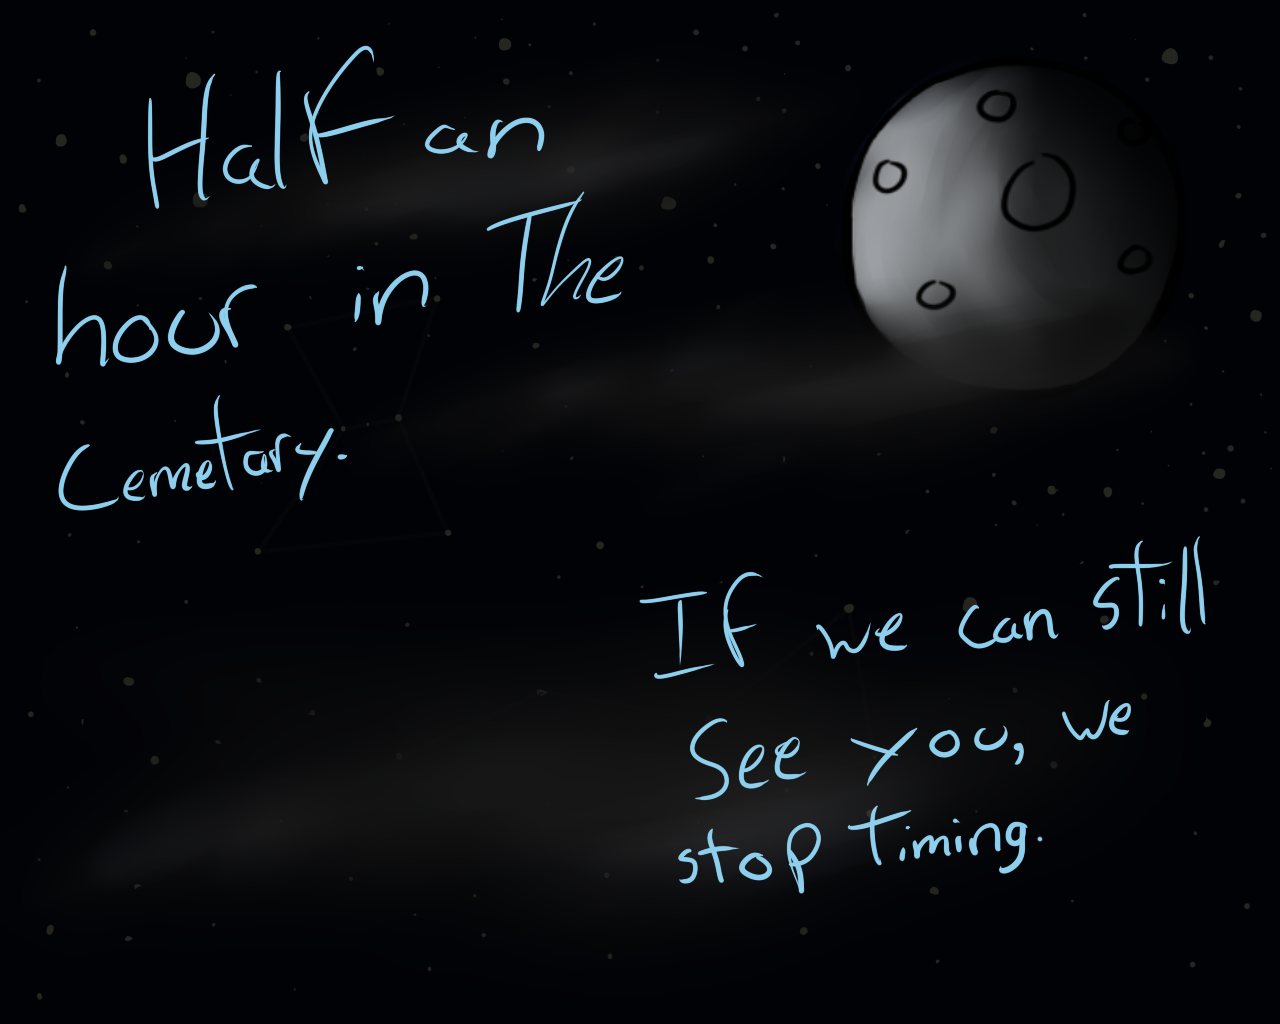 Half an
hour in The
Cemetary.
If we can still
See you, we
stop timing.